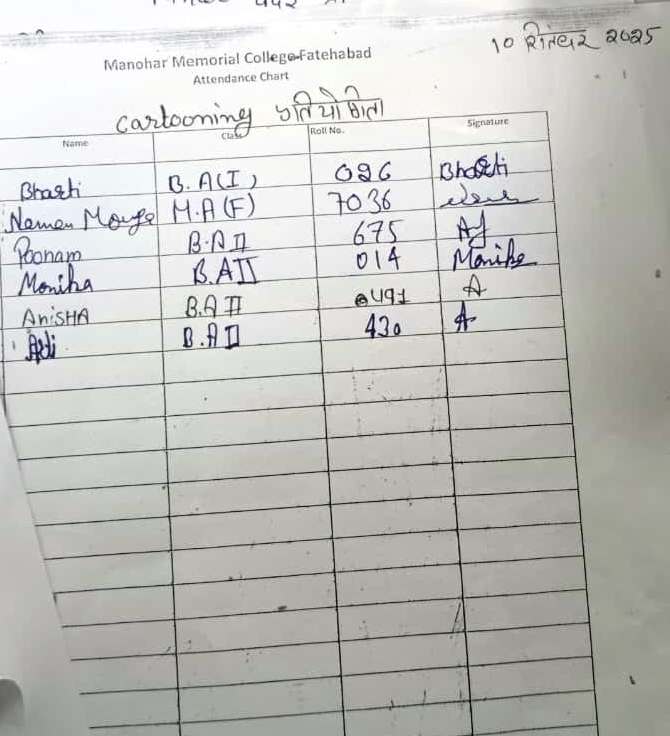 10 सितंबर 2025
Manohar Memorial College Fatehabad
Attendance Chart
Cartooning प्रतियोगिता
Name Class Roll No. Signature
Bharti B.A(I) 026 Bharti
Namen M.A(F) 7036
Poonam B.A II 675
Monika B.A II 014 Monika
AniSHA B.A II 0491 A
Arti B.A II 430 A